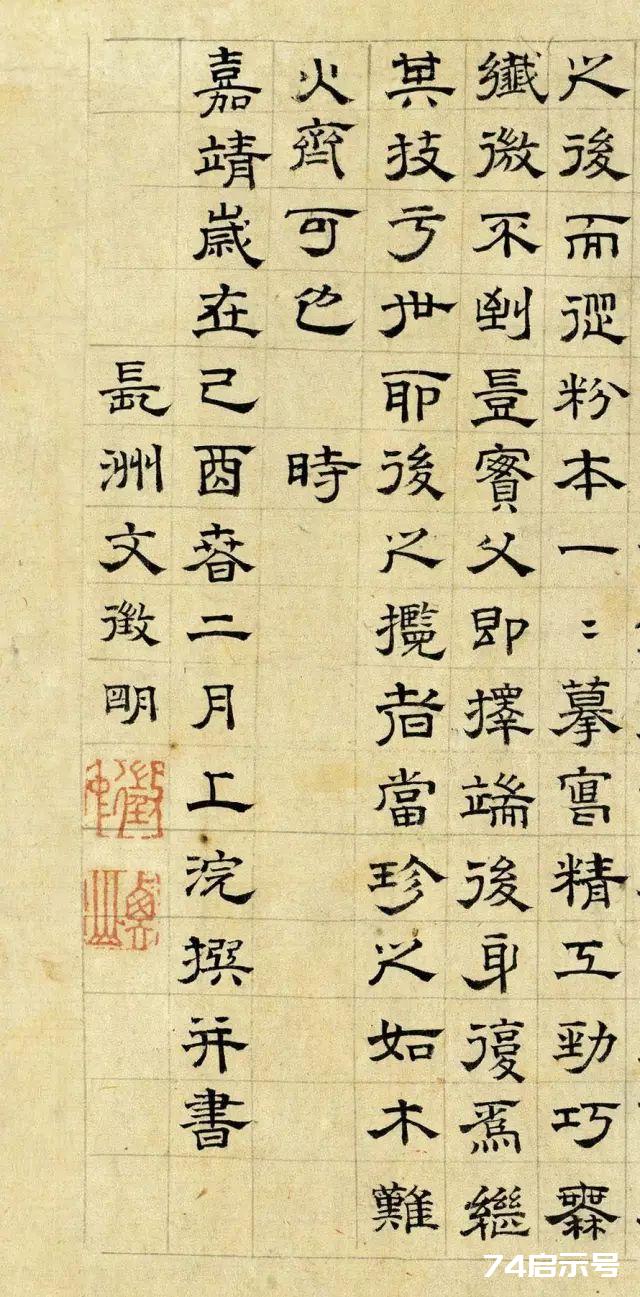 之後而從粉本一〻摹寫精工勁巧橆
纖微不到豈實父即擇端後身復爲繼
其技亏世耶後之攬者當珍之如木難
火齊可也 時
嘉靖歲在己酉春二月上浣撰并書
長洲文徵明
74启示号